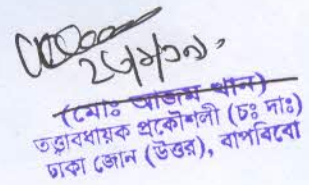 (মোঃ আজম খান)
তত্ত্বাবধায়ক প্রকৌশলী (চঃ দাঃ)
ঢাকা জোন (উত্তর), বাপবিবো